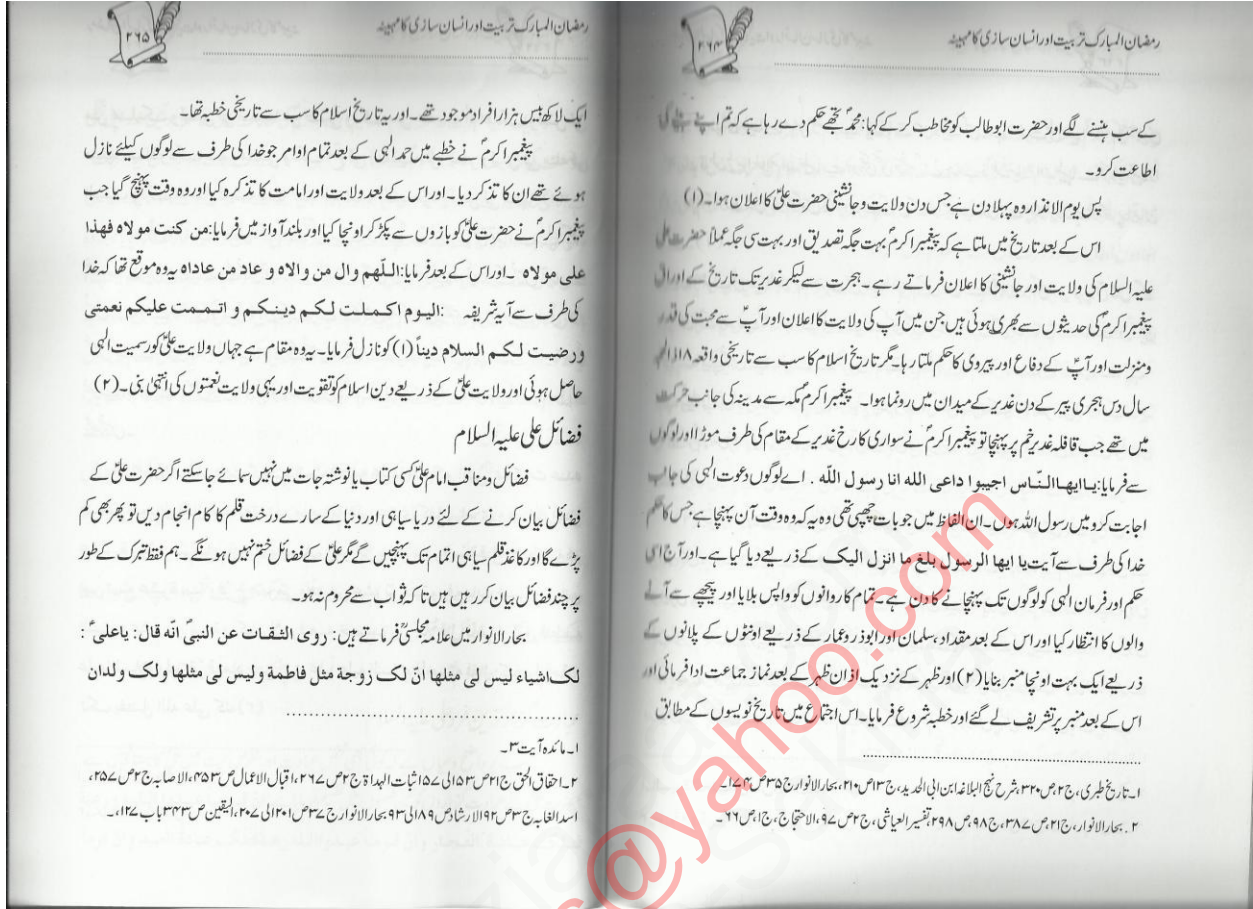 رمضان المبارک تربیت اور انسان سازی کا مہینہ
۲۶۴
کے سب ہنسنے لگے اور حضرت ابوطالب کو مخاطب کر کے کہا: محمدؐ تجھے حکم دے رہا ہے کہ تم اپنے بیٹے کی
اطاعت کرو۔
پس یوم الانذار وہ پہلا دن ہے جس دن ولایت و جانشینی حضرت علیؑ کا اعلان ہوا۔(۱)
اس کے بعد تاریخ میں ملتا ہے کہ پیغمبر اکرمؐ بہت جگہ تصدیق اور بہت سی جگہ عملاً حضرت علی
علیہ السلام کی ولایت اور جانشینی کا اعلان فرماتے رہے۔ ہجرت سے لیکر غدیر تک تاریخ کے اوراق
پیغمبر اکرمؐ کی حدیثوں سے بھری ہوئی ہیں جن میں آپ کی ولایت کا اعلان اور آپؑ سے محبت کی قدر
ومنزلت اور آپؑ کے دفاع اور پیروی کا حکم ملتا رہا۔ مگر تاریخ اسلام کا سب سے تاریخی واقعہ ۱۸
سال دس ہجری پیر کے دن غدیر کے میدان میں رونما ہوا۔ پیغمبر اکرمؐ مکہ سے مدینہ کی جانب حرکت
میں تھے جب قافلہ غدیر خم پر پہنچا تو پیغمبر اکرمؐ نے سواری کا رخ غدیر کے مقام کی طرف موڑا اور لوگوں
سے فرمایا: یا ایھا النّاس اجیبوا داعی اللہ انا رسول اللّٰہ . اے لوگوں دعوت الہی کی جانب
اجابت کرو میں رسول اللہ ہوں۔ ان الفاظ میں جو بات چھپی تھی وہ یہ کہ وہ وقت آن پہنچا ہے جس کا حکم
خدا کی طرف سے آیت یا ایھا الرسول بلغ ما انزل الیک کے ذریعے دیا گیا ہے۔ اور آج اسی
حکم اور فرمان الہی کو لوگوں تک پہنچانے کا دن ہے۔ تمام کاروانوں کو واپس بلایا اور پیچھے سے آنے
والوں کا انتظار کیا اور اس کے بعد مقداد، سلمان اور ابوذر و عمار کے ذریعے اونٹوں کے پلانوں کے
ذریعے ایک بہت اونچا منبر بنایا (۲) اور ظہر کے نزدیک اذان ظہر کے بعد نماز جماعت ادا فرمائی اور
اس کے بعد منبر پر تشریف لے گئے اور خطبہ شروع فرمایا۔ اس اجتماع میں تاریخ نویسوں کے مطابق
۱۔ تاریخ طبری، ج۲، ص۳۲۰، شرح نہج البلاغہ ابن ابی الحدید، ج۱۳ ص۲۱۰، بحار الانوار ج۳۵ ص۱۷۴۔
۲. بحار الانوار، ج۲۱، ص۳۸۷، ج۹۸، ص۲۹۸ تفسیر العیاشی، ج۲ ص۹۷، الاحتجاج، ج۱، ص۶۶۔
رمضان المبارک تربیت اور انسان سازی کا مہینہ
۲۶۵
ایک لاکھ بیس ہزار افراد موجود تھے۔ اور یہ تاریخ اسلام کا سب سے تاریخی خطبہ تھا۔
پیغمبر اکرمؐ نے خطبے میں حمد الہی کے بعد تمام اوامر جو خدا کی طرف سے لوگوں کیلئے نازل
ہوئے تھے ان کا تذکر دیا۔ اور اس کے بعد ولایت اور امامت کا تذکرہ کیا اور وہ وقت پہنچ گیا جب
پیغمبر اکرمؐ نے حضرت علیؑ کو بازوں سے پکڑ کر اونچا کیا اور بلند آواز میں فرمایا: من کنت مولاہ فھذا
علی مولاہ ۔ اور اس کے بعد فرمایا: اللّٰھم وال من والاہ و عاد من عاداہ یہ وہ موقع تھا کہ خدا
کی طرف سے آیہ شریفہ :الیوم اکملت لکم دینکم و اتممت علیکم نعمتی
ورضیت لکم السلام دیناً (۱) کو نازل فرمایا۔ یہ وہ مقام ہے جہاں ولایت علیؑ کو رسمیت الہی
حاصل ہوئی اور ولایت علیؑ کے ذریعے دین اسلام کو تقویت اور یہی ولایت نعمتوں کی انتہیٰ بنی۔(۲)
فضائل علی علیہ السلام
فضائل و مناقب امام علیؑ کسی کتاب یا نوشتہ جات میں نہیں سمائے جا سکتے اگر حضرت علیؑ کے
فضائل بیان کرنے کے لئے دریا سیاہی اور دنیا کے سارے درخت قلم کا کام انجام دیں تو پھر بھی کم
پڑے گا اور کاغذ قلم سیاہی اتمام تک پہنچیں گے مگر علیؑ کے فضائل ختم نہیں ہونگے۔ ہم فقط تبرک کے طور
پر چند فضائل بیان کر رہیں ہیں تاکہ ثواب سے محروم نہ ہو۔
بحار الانوار میں علامہ مجلسیؒ فرماتے ہیں: روی الثقات عن النبیؐ انّہ قال: یا علیؑ :
لک اشیاء لیس لی مثلھا انّ لک زوجة مثل فاطمة ولیس لی مثلھا ولک ولدان
۱۔ مائدہ آیت ۳۔
۲۔ احقاق الحق ج۲۱ ص۱۵۳ الی ۱۵۷ اثبات الہداۃ ج۲ ص۲۶۷، اقبال الاعمال ص۴۵۳، الاصابہ ج۲ ص۲۵۷،
اسد الغابہ ج۳ ص۹۲ الارشاد ص۸۹ الی ۹۳ بحار الانوار ج۳۷ ص۲۰۱ الی ۲۰۷، الیقین ص۳۴۳ باب ۱۲۷،۔
s@yahoo.com